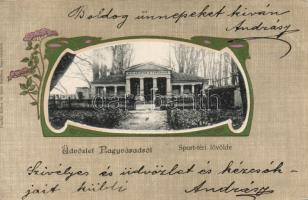 Boldog ünnepeket kiván
András
Üdvözlet Nagyváradról
Sport-téri lövölde
Szivélyes és üdvözlat és kézcsók-
jait küldi
András